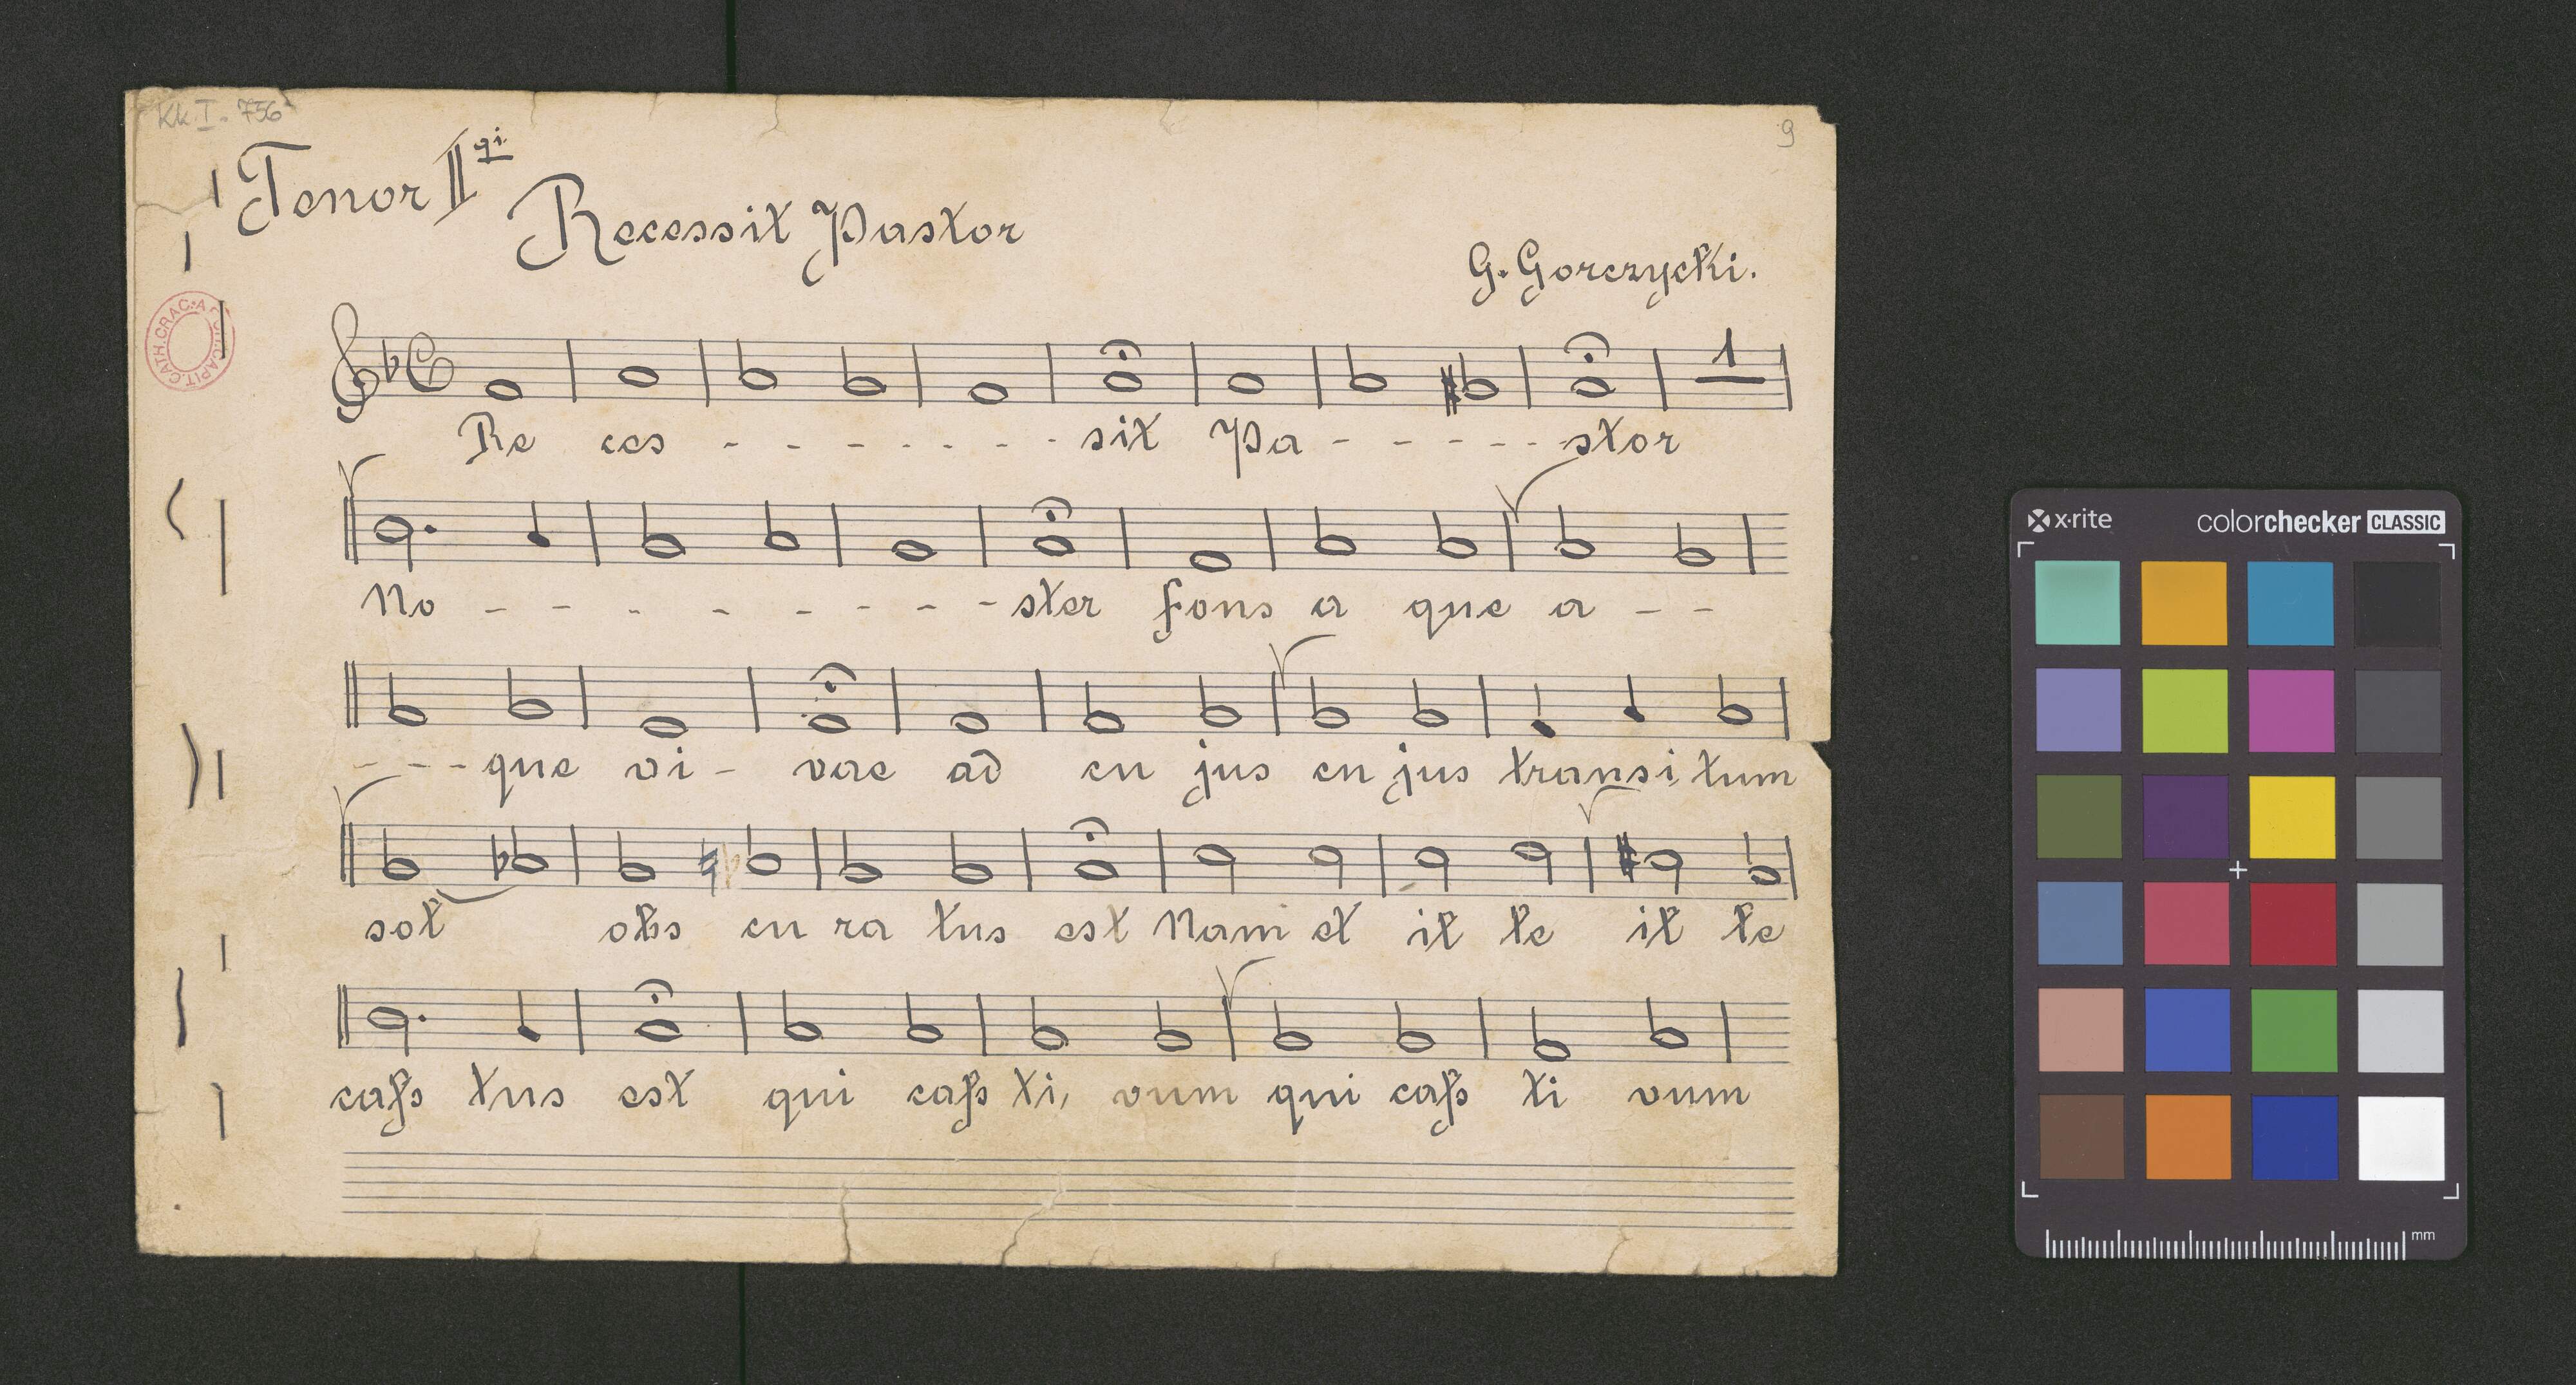 Kk I. 756
9
Tenor II gi
Recessit Pastor
G. Gorczycki.
1
Re ces - - - - - - - sit Pa - - - - - stor
No - - - - - - - - ster fons a que a - -
- - - que vi - vae ad cu jus cu jus transi tum
sol obs cu ra tus est Nam et il le il le
cap tus est qui cap ti, vum qui cap ti vum
x·rite colorchecker CLASSIC
mm